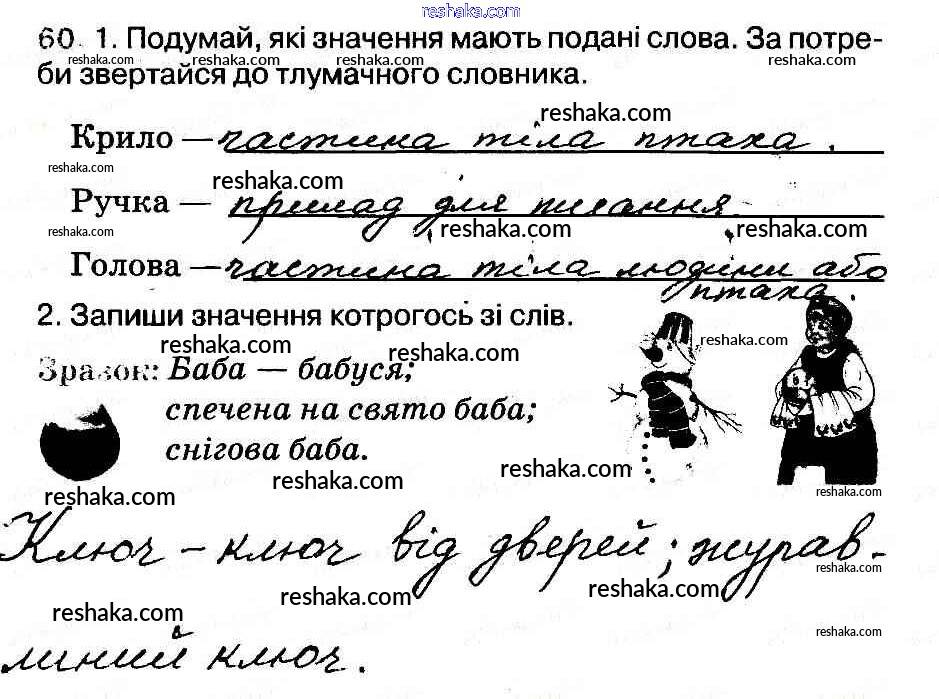 reshaka.com
60. 1. Подумай, які значення мають подані слова. За потре-
reshaka.com reshaka.com reshaka.com reshaka.com
би звертайся до тлумачного словника.
reshaka.com
Крило — частина тіла птаха.
reshaka.com
reshaka.com
Ручка — прилад для писання
reshaka.com reshaka.com reshaka.com
Голова — частина тіла людини або
птаха.
2. Запиши значення котрогось зі слів.
reshaka.com reshaka.com reshaka.com
Зразок: Баба — бабуся;
спечена на свято баба;
снігова баба.
reshaka.com reshaka.com reshaka.com reshaka.com
Ключ - ключ від дверей; журав-
reshaka.com
reshaka.com reshaka.com reshaka.com
линий ключ.
reshaka.com